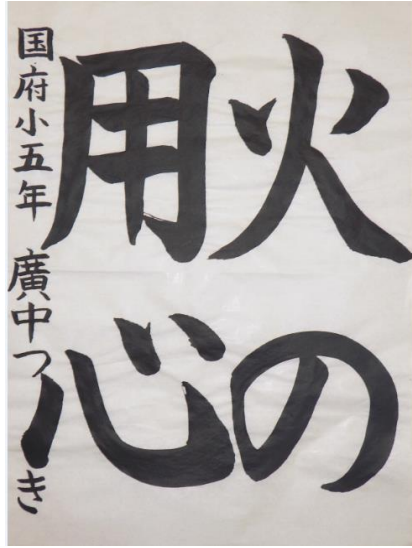 火の
用心
国府小五年 廣中つき